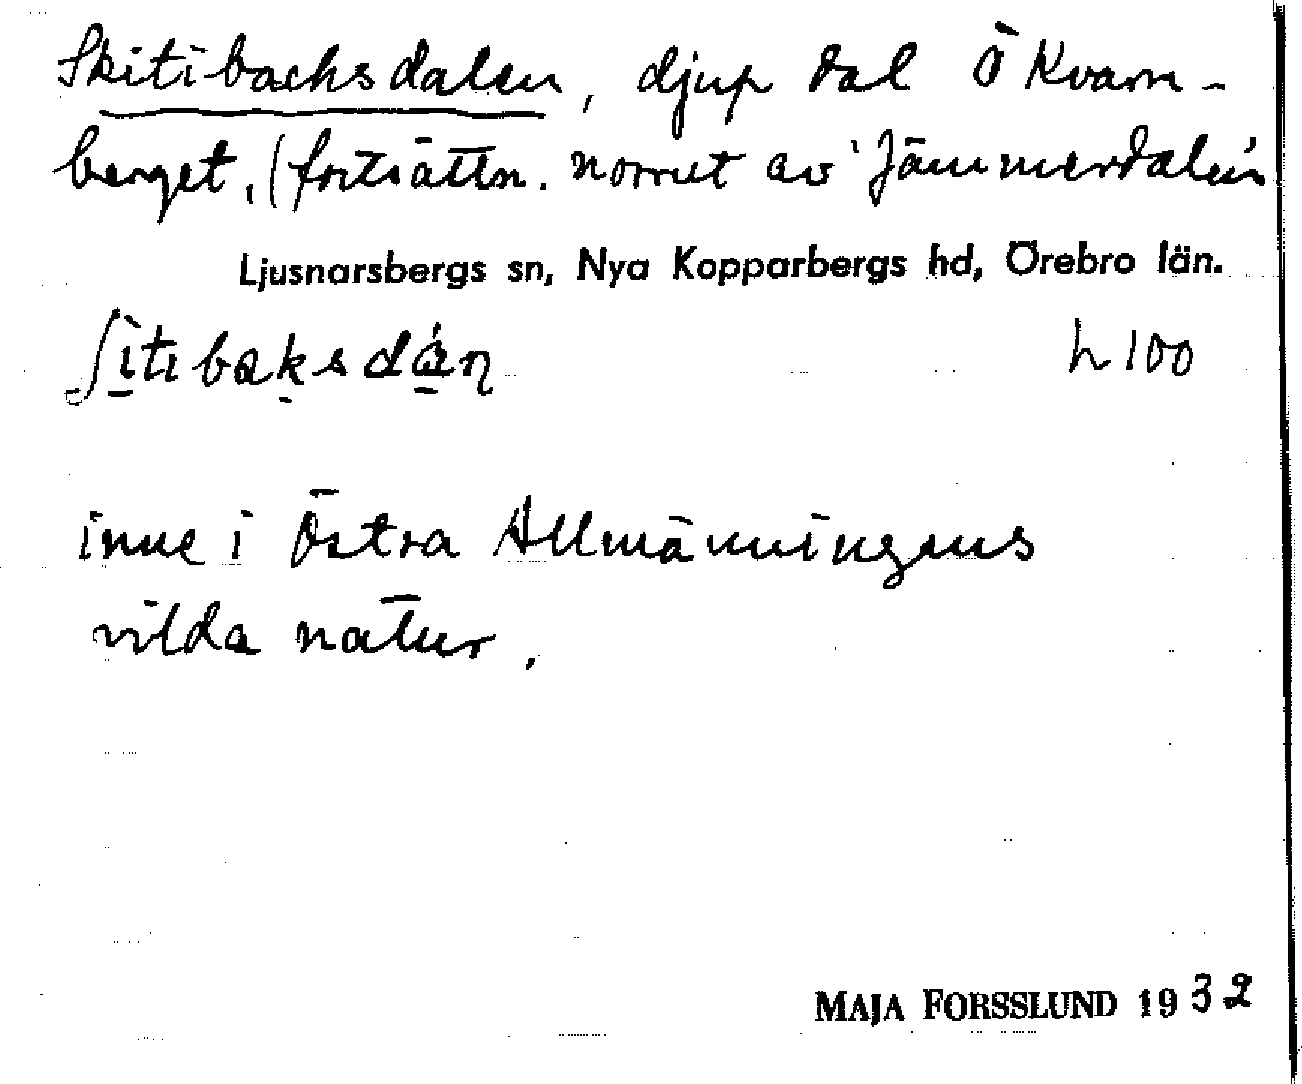 Skitibacksdalen, djup dal Ö Kvarn-
berget, (fortsättn. norrut av 'Jämmerdalen'
Ljusnarsbergs sn, Nya Kopparbergs hd, Örebro län.
h 100
inne i Östra Allmänningens
vilda natur.
MAJA FORSSLUND 1932